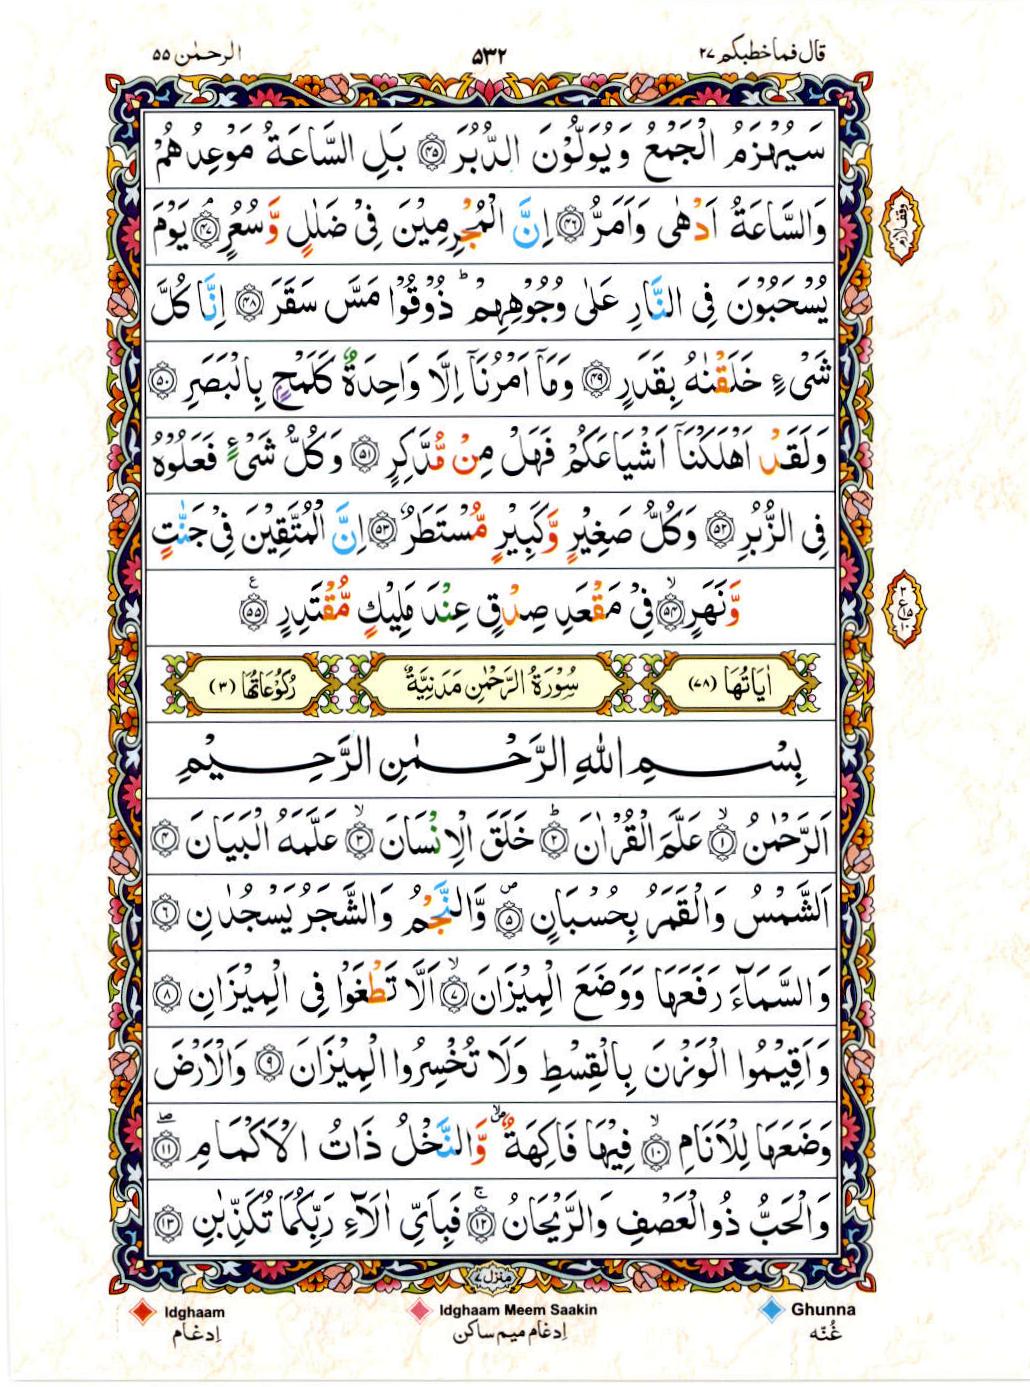 قال فما خطبكم ۲۷
۵۳۲
الرحمٰن ۵۵
سَيُهْزَمُ الْجَمْعُ وَيُوَلُّوْنَ الدُّبُرَ ﴿۴۵﴾ بَلِ السَّاعَةُ مَوْعِدُهُمْ
وَالسَّاعَةُ اَدْهٰى وَاَمَرُّ ﴿۴۶﴾ اِنَّ الْمُجْرِمِيْنَ فِىْ ضَلٰلٍ وَّسُعُرٍ ﴿۴۷﴾ۘ يَوْمَ
يُسْحَبُوْنَ فِى النَّارِ عَلٰى وُجُوْهِهِمْ ؕ ذُوْقُوْا مَسَّ سَقَرَ ﴿۴۸﴾ اِنَّا كُلَّ
شَىْءٍ خَلَقْنٰهُ بِقَدَرٍ ﴿۴۹﴾ وَمَاۤ اَمْرُنَاۤ اِلَّا وَاحِدَةٌ كَلَمْحٍۭ بِالْبَصَرِ ﴿۵۰﴾
وَلَقَدْ اَهْلَكْنَاۤ اَشْيَاعَكُمْ فَهَلْ مِنْ مُّدَّكِرٍ ﴿۵۱﴾ وَكُلُّ شَىْءٍ فَعَلُوْهُ
فِى الزُّبُرِ ﴿۵۲﴾ وَكُلُّ صَغِيْرٍ وَّكَبِيْرٍ مُّسْتَطَرٌ ﴿۵۳﴾ اِنَّ الْمُتَّقِيْنَ فِىْ جَنّٰتٍ
وَّنَهَرٍ ﴿۵۴﴾ۙ فِىْ مَقْعَدِ صِدْقٍ عِنْدَ مَلِيْكٍ مُّقْتَدِرٍ ﴿۵۵﴾
اٰيَاتُهَا (۷۸) سُوْرَةُ الرَّحْمٰنِ مَدَنِيَّةٌ رُكُوْعَاتُهَا (۳)
بِسْمِ اللّٰهِ الرَّحْمٰنِ الرَّحِيْمِ
اَلرَّحْمٰنُ ﴿۱﴾ۙ عَلَّمَ الْقُرْاٰنَ ﴿۲﴾ؕ خَلَقَ الْاِنْسَانَ ﴿۳﴾ۙ عَلَّمَهُ الْبَيَانَ ﴿۴﴾
اَلشَّمْسُ وَالْقَمَرُ بِحُسْبَانٍ ﴿۵﴾ وَّالنَّجْمُ وَالشَّجَرُ يَسْجُدٰنِ ﴿۶﴾
وَالسَّمَآءَ رَفَعَهَا وَوَضَعَ الْمِيْزَانَ ﴿۷﴾ۙ اَلَّا تَطْغَوْا فِى الْمِيْزَانِ ﴿۸﴾
وَاَقِيْمُوا الْوَزْنَ بِالْقِسْطِ وَلَا تُخْسِرُوا الْمِيْزَانَ ﴿۹﴾ وَالْاَرْضَ
وَضَعَهَا لِلْاَنَامِ ﴿۱۰﴾ۙ فِيْهَا فَاكِهَةٌ وَّالنَّخْلُ ذَاتُ الْاَكْمَامِ ﴿۱۱﴾
وَالْحَبُّ ذُو الْعَصْفِ وَالرَّيْحَانُ ﴿۱۲﴾ۚ فَبِاَىِّ اٰلَآءِ رَبِّكُمَا تُكَذِّبٰنِ ﴿۱۳﴾
منزل ۷
Idghaam
Idghaam Meem Saakin
Ghunna
اِدغام
اِدغام میم ساکن
غُنّه